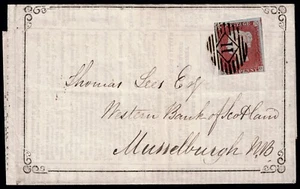 Thomas Lees Esq
Western Bank of Scotland
Musselburgh N.B.
11